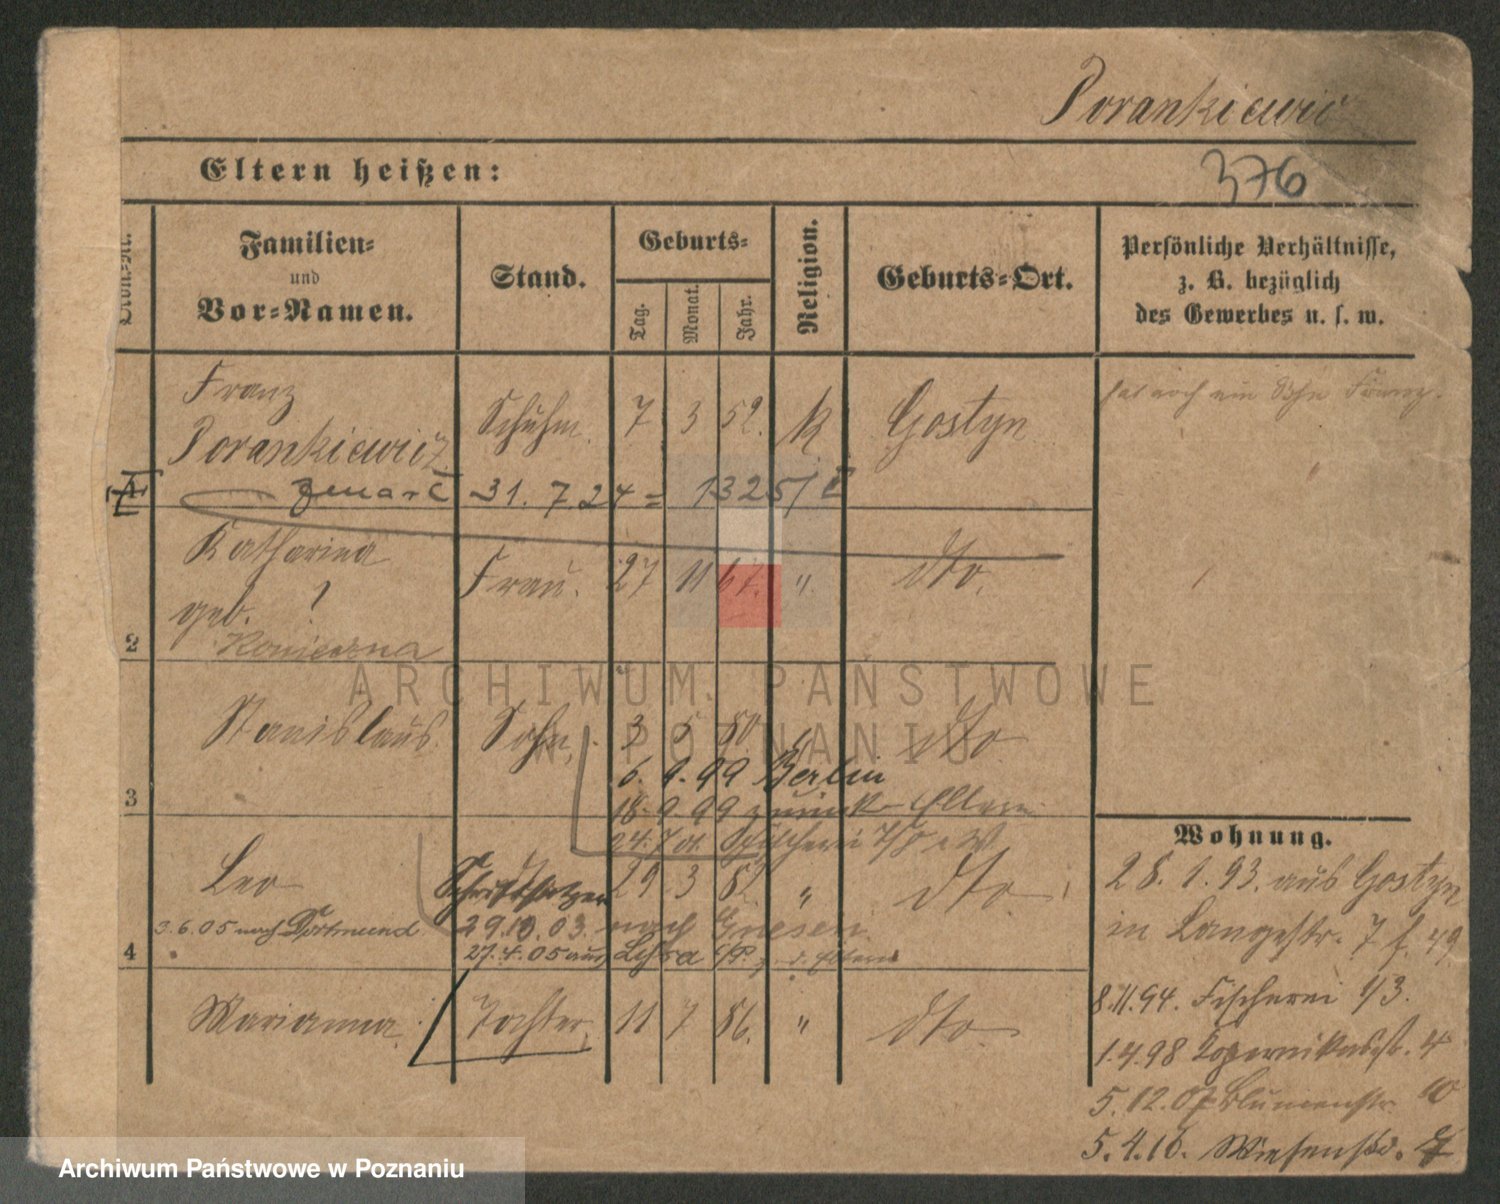 Porankiewicz
Eltern heißen:
376
Familien-
und
Vor-Namen.
Stand.
Geburts-
Tag.
Monat.
Jahr.
Religion.
Geburts-Ort.
Persönliche Verhältnisse,
z. B. bezüglich
des Gewerbes u. s. w.
Franz
Porankiewicz
Schuhm. 7 3 52. k Gostyn
hat noch ein Sohn Franz.
1
zmarł 31. 7. 24 = 1325/
Katharina
geb. ?
Konieczna
Frau. 27 11 67. " dto.
2
ARCHIWUM PAŃSTWOWE
W POZNANIU
Stanislaus. Sohn. 3 5 80. " dto
6. 9. 99 Berlin
18. 9. 99 zurück Eltern
3
24. 7. Fischerei
Leo Schriftsetzer 29 3 82 " dto
3.6.05 nach Dortmund
29.10.03. nach Gnesen
27.4.05 aus Lissa z. d. Eltern
4
Marianna. Tochter, 11 7 86. " dto.
Wohnung.
28. 1. 93. aus Gostyn
in Langestr. 7
8.11.94. Fischerei 1/3.
1.4.98 Kopernikusstr. 4
5.12.07 Blumenstr. 10
5.4.16. Wiesenstr.
Archiwum Państwowe w Poznaniu